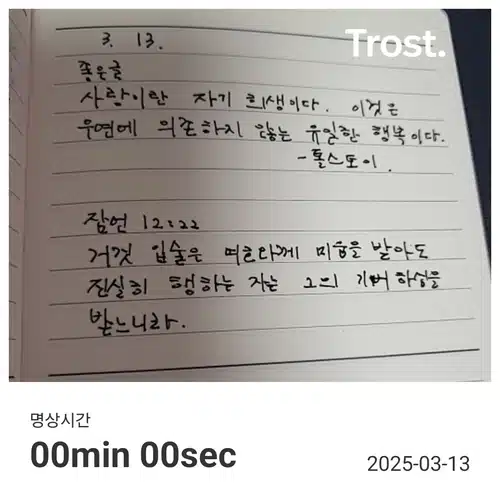 Trost.
3. 13.
좋은글
사랑이란 자기 희생이다. 이것은
우연에 의존하지 않는 유일한 행복이다.
-톨스토이.
잠언 12:22
거짓 입술은 여호와께 미움을 받아도
진실히 행하는 자는 그의 기뻐 하심을
받느니라.
명상시간
00min 00sec
2025-03-13